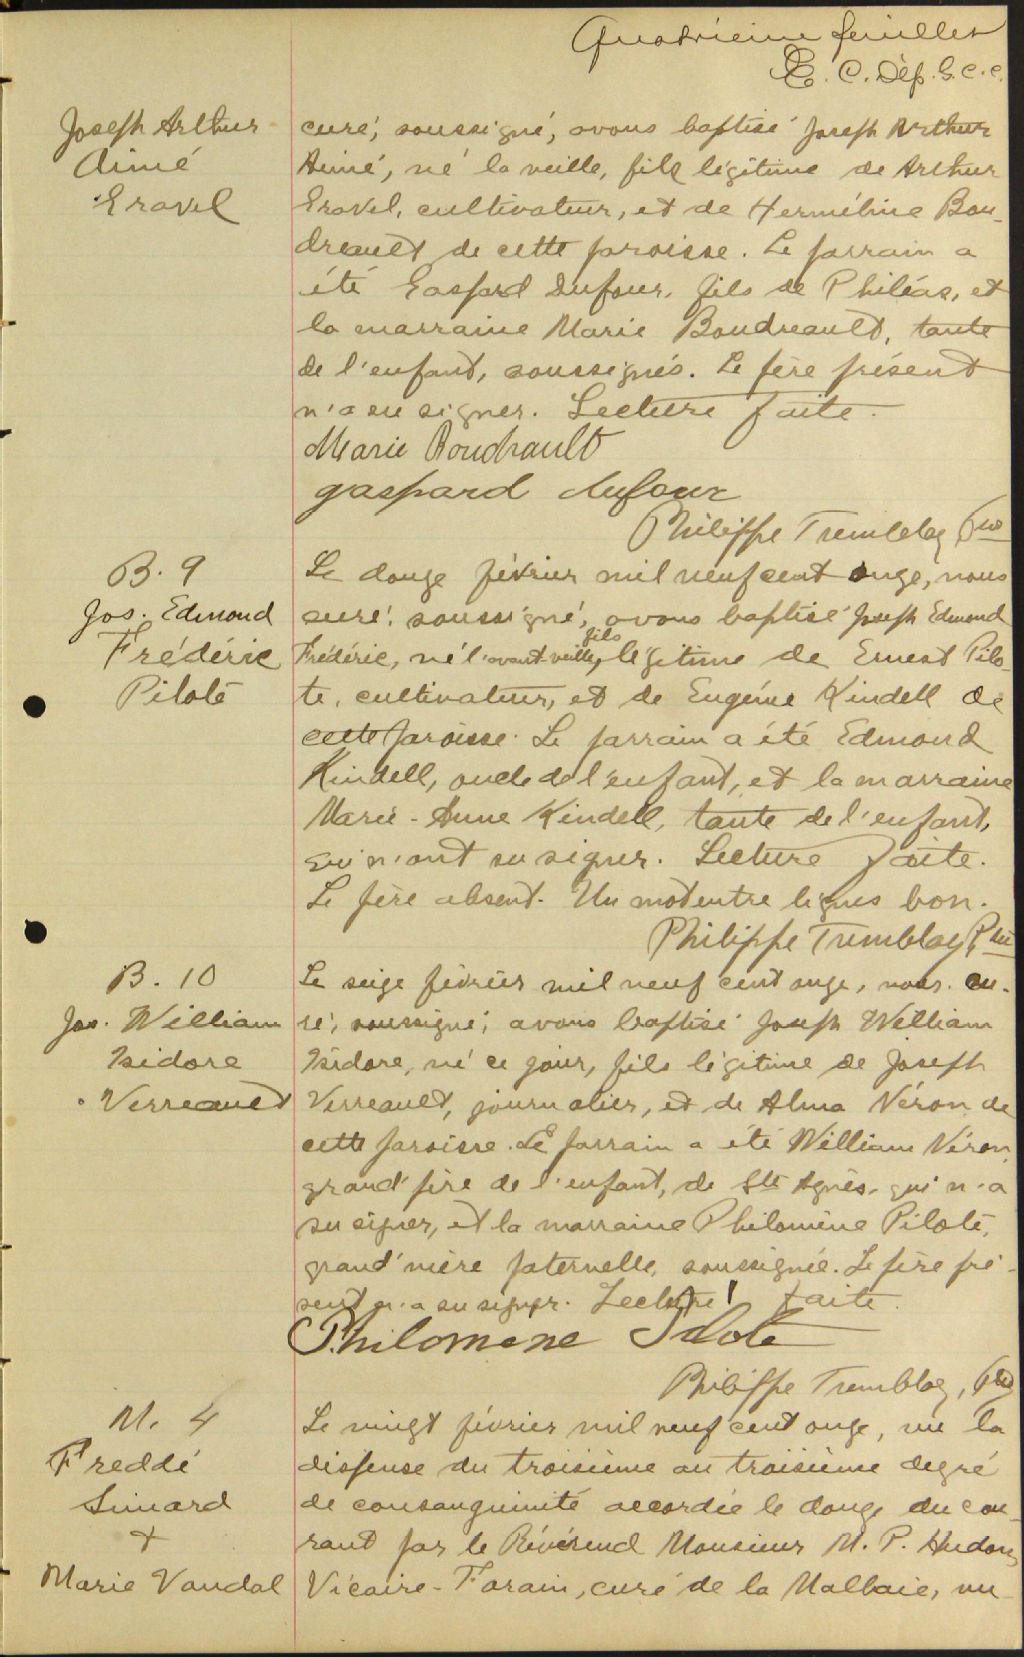 Quatrième feuillet
E. C. Dép. G. C. C.
Joseph Arthur
Aimé
Gravel
curé, soussigné, avons baptisé Joseph Arthur
Aimé, né la veille, fils légitime de Arthur
Gravel, cultivateur, et de Herméline Bou-
dreault de cette paroisse. Le parrain a
été Gaspard Dufour, fils de Philéas, et
la marraine Marie Boudreault, tante
de l'enfant, soussignés. Le père présent
n'a su signer. Lecture faite.
Marie Boudrault
gaspard dufour
Philippe Tremblay Ptre
B. 9
Jos. Edmond
Frédéric
Pilote
Le douze février mil neuf cent onze, nous
curé soussigné, avons baptisé Joseph Edmond
fils
Frédéric, né l'avant-veille, légitime de Ernest Pilo-
te, cultivateur, et de Eugénie Kindell de
cette paroisse. Le parrain a été Edmond
Kindell, oncle de l'enfant, et la marraine
Marie-Anne Kindell, tante de l'enfant,
qui n'ont su signer. Lecture faite.
Le père absent. Un mot entre lignes bon.
Philippe Tremblay, Ptre
B. 10
Jos. William
Isidore
Verreault
Le seize février mil neuf cent onze, nous cu-
ré, soussigné, avons baptisé Joseph William
Isidore, né ce jour, fils légitime de Joseph
Verreault, journalier, et de Alma Néron de
cette paroisse. Le parrain a été William Néron,
grand'père de l'enfant, de Ste Agnès, qui n'a
su signer, et la marraine Philomène Pilote,
grand'mère paternelle, soussignée. Le père pré-
sent n'a su signer. Lecture faite.
Philomene Pilote
Philippe Tremblay, Ptre
M. 4
Freddé
Simard
+
Marie Vandal
Le vingt février mil neuf cent onze, vu la
dispense du troisième au troisième degré
de consanguinité accordée le douze du cou-
rant par le Révérend Monsieur M. P. Hudon,
Vicaire-Forain, curé de la Malbaie, vu